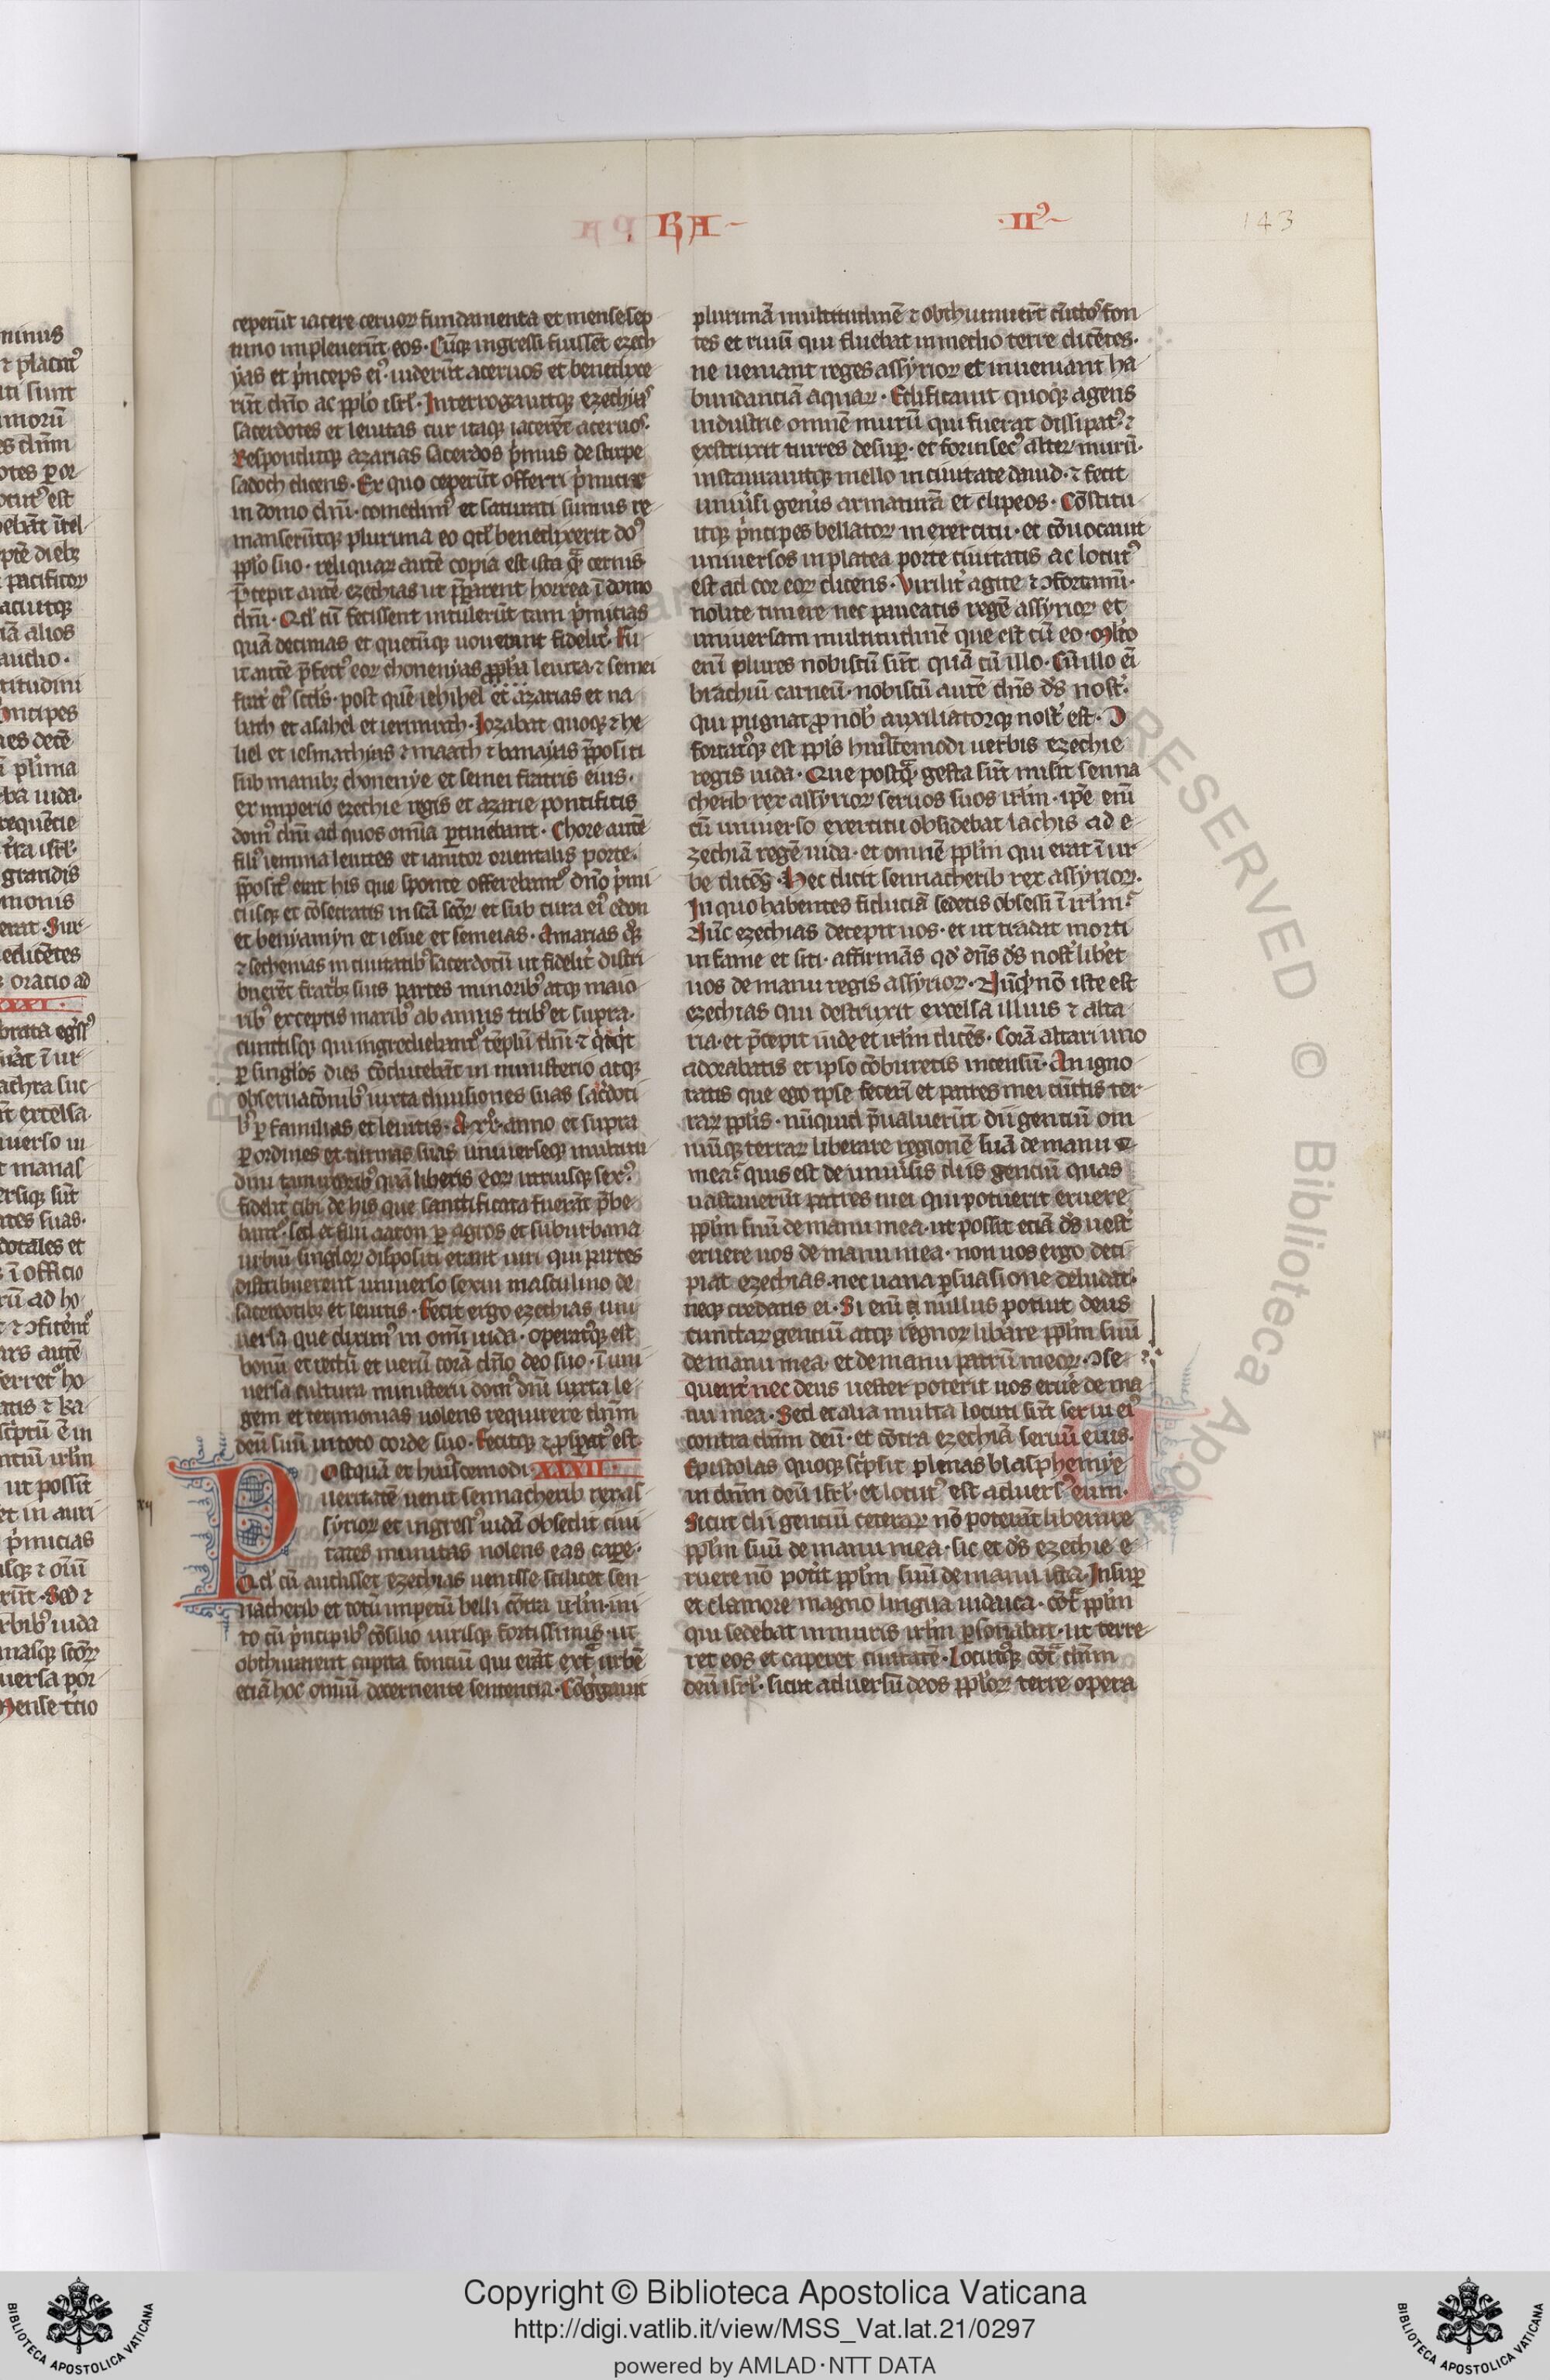 RA
II
143
ceperūt iacere aceruoꝝ fundamenta et mense sep
timo impleuerūt eos. Cūqꝫ ingressi fuissēt ezech
yas et pͥnceps eiꝰ uiderūt aceruos et benedixe
rūt dn̄o ac pp̄lo isrl̄. Interrogauitqꝫ ezechias
sacerdotes et leuitas cur itaqꝫ iacerēt aceruos.
Responditqꝫ azarias sacerdos pͥmus de stirpe
sadoch dicens. Ex quo ceperūt offerri pͥmitie
in domo dn̄i. comedimꝰ et saturati sumus re
manserūtqꝫ plurima eo qd̄ benedixerit dn̄s
pp̄lo suo. reliquaꝝ autē copia est ista qᷓ cernis
p̄cepit autē ezechias ut p̄pararent horrea ī domo
dn̄i. Qd̄ cū fecissent intulerūt tam pͥmicias
quā decimas et quecūqꝫ uouerant fidelit̾. Fu
it autē p̄fectꝰ eoꝝ chonenyas leuita ⁊ semei
frat̾ eiꝰ scd̄s. post quē iehihel et azarias et na
bath et asahel et ierimuth. Iozabat quoqꝫ ⁊ he
liel et iesmathias ⁊ maath ⁊ banayas p̄positi
sub manibꝫ chonenye et semei fratris eius.
ex imperio ezechie regis et azarie pontificis
domꝰ dn̄i ad quos om̄ia ꝑtinebant. Chore autē
filiꝰ iemma leuites et ianitor orientalis porte.
p̄positꝰ erat his que sponte offerebantͬ dn̄o pͥmi
ciisqꝫ et cōsecratis in sc̄a sc̄oꝝ et sub cura eiꝰ eden
et benyamyn et iesue et semeias. Amarias qͦqꝫ
⁊ sechenias in ciuitatibꝰ sacerdotū ut fidelit̾ distri
buerēt fratribꝫ suis partes minoribꝰ atqꝫ maio
ribꝰ exceptis maribꝰ ab annis tribꝰ et supra.
cunctisqꝫ qui ingrediebantͬ tēplū dn̄i ⁊ qͥcqͥd
ꝑ singl̄os dies cōducebāt in ministerio atqꝫ
obseruacōnibꝰ iuxta diuisiones suas sacͤdoti
bꝰ ꝑ familias et leuitis. A xxͦ. anno et supra
ꝑ ordines et turmas suas uniuerseqꝫ multitu
dini tam uxoribꝰ quā liberis eoꝝ utriusqꝫ sexꝰ.
fidelit̾ cibi de his que sanctificata fuerāt p̄be
bantͬ. sed et filii aaron ꝑ agros et suburbana
urbiū singl̄oꝝ dispositi erant uiri qui partes
distribuerent uniuerso sexui masculino de
sacerdotibꝫ et leuitis. Fecit ergo ezechias uni
uersa que diximꝰ in omī iuda. operatꝰqꝫ est
bonū et rectū et uerū corā dn̄o deo suo. ī uni
uersa cultura ministerii domꝰ dn̄i iuxta le
gem et cerimonias uolens requirere dn̄m
deū suū in toto corde suo. Fecitqꝫ ⁊ ꝓspatꝰ est.
Postquā et huiꝰcemodi XXXII.
ueritatē uenit sennacherib rex as
syrioꝝ et ingressꝰ iudā obsedit ciui
tates munitas uolens eas capͤe.
Qd̄ cū audisset ezechias uenisse scilicet sen
nacherib et totū impetū belli cōtra irl̄m. ini
to cū pͥncipibꝰ cōsilio uirisqꝫ fortissimis. ut
obthurarent capita fonciū qui erāt extᷓ urbē
eciā hoc omniū decernente sentencia. Cōgͤgauit
plurimā multitudinē ⁊ obthurauerūt cūctos fon
tes et riuū qui fluebat in medio terre dicētes.
ne ueniant reges assyrioꝝ et inueniant ha
bundanciā aquaꝝ. Edificauit quoqꝫ agens
industrie omnē murū qui fuerat dissipatꝰ. ⁊
exstruxit turres desuꝑ. et forinsecꝰ alterͬ murū.
instaurauitqꝫ mello in ciuitate dauid. ⁊ fecit
uniuͥsi genͥis armaturā et clipeos. Cōstitu
itqꝫ pͥncipes bellatoꝝ in exercitu. et cōuocauit
uniuersos in platea porte ciuitatis ac locutꝰ
est ad cor eoꝝ dicens. Virilit̾ agite ⁊ ɔfortami.
nolite timere nec paueatis regē assyrioꝝ et
uniuersam multitudinē que est cū eo. Mlͭo
enī plures nobiscū sūt quā cū illo. Cū illo eī
brachiū carneū. nobiscū autē dn̄s ds̄ nost̾.
qui pugnat ꝓ nob̾ auxiliatorqꝫ nost̾ est. Ɔ
fortatꝰqꝫ est ppl̄s huiꝰcemodi uerbis ezechie
regis iuda. Que postqᷓ gesta sūt misit senna
cherib rex assyrioꝝ seruos suos irl̄m. ip̄e enī
cū uniuerso exercitu obsidebat lachis ad e
zechiā regē iuda. et omnē pp̄lm qui erat ī ur
be dicēs. Hec dicit sennacherib rex assyrioꝝ.
In quo habentes fiduciā sedetis obsessi ī irl̄m.
Nūc ezechias decepit uos. et ut tradat morti
in fame et siti. affirmās qd̄ dn̄s ds̄ nost̾ liberet
uos de manu regis assyrioꝝ. Nūqͥd nō iste est
ezechias qui destruxit excelsa illius ⁊ alta
ria. et p̄cepit iude et irl̄m dicēs. Corā altari uno
adorabatis et ipso cōburetis incensū. An igno
ratis que ego ipse fecerī et patres mei cūctis ter
raꝝ pp̄lis. nūquid p̄ualuerūt dii genciū om
niūqꝫ terraꝝ liberare regionē suā de manu
mea. quis est de uniuͥsis diis genciū quas
uastauerūt patres mei qui potuerit eruere
pp̄lm suū de manu mea. ut possit eciā ds̄ uest̾
eruere uos de manu mea. non uos ergo deci
piat ezechias. nec uana ꝑsuasione deludat.
neqꝫ credatis ei. Si enī nullus potuit deus
cunctaꝝ genciū atqꝫ regnoꝝ libͤare pp̄lm suū
de manu mea. et de manu patrū meoꝝ. ɔse
quent̾ nec deus uester poterit uos eruͤe de ma
nu mea. Sed et alia multa locuti sūt serui eiꝰ
contra dn̄m deū. et cōtra ezechiā seruū eius.
Epistolas quoqꝫ scͥpsit plenas blasphemye
in dn̄m deū isrl̄. et locutꝰ est aduersꝰ eum.
Sicut dii genciū ceteraꝝ nō poterāt liberare
pp̄lm suū de manu mea. sic et ds̄ ezechie e
ruere nō potͥit pp̄lm suū de manu ista. Insuꝑ
et clamore magno lingua iudaica. cōtᷓ pp̄lm
qui sedebat in muris irl̄m ꝑsonabat. ut terre
ret eos et caperet ciuitatē. Locutꝰqꝫ cōtᷓ dn̄m
deū isrl̄. sicut aduersū deos pp̄loꝝ terre opera
Copyright © Biblioteca Apostolica Vaticana
http://digi.vatlib.it/view/MSS_Vat.lat.21/0297
powered by AMLAD·NTT DATA
BIBLIOTECA APOSTOLICA VATICANA
BIBLIOTECA APOSTOLICA VATICANA